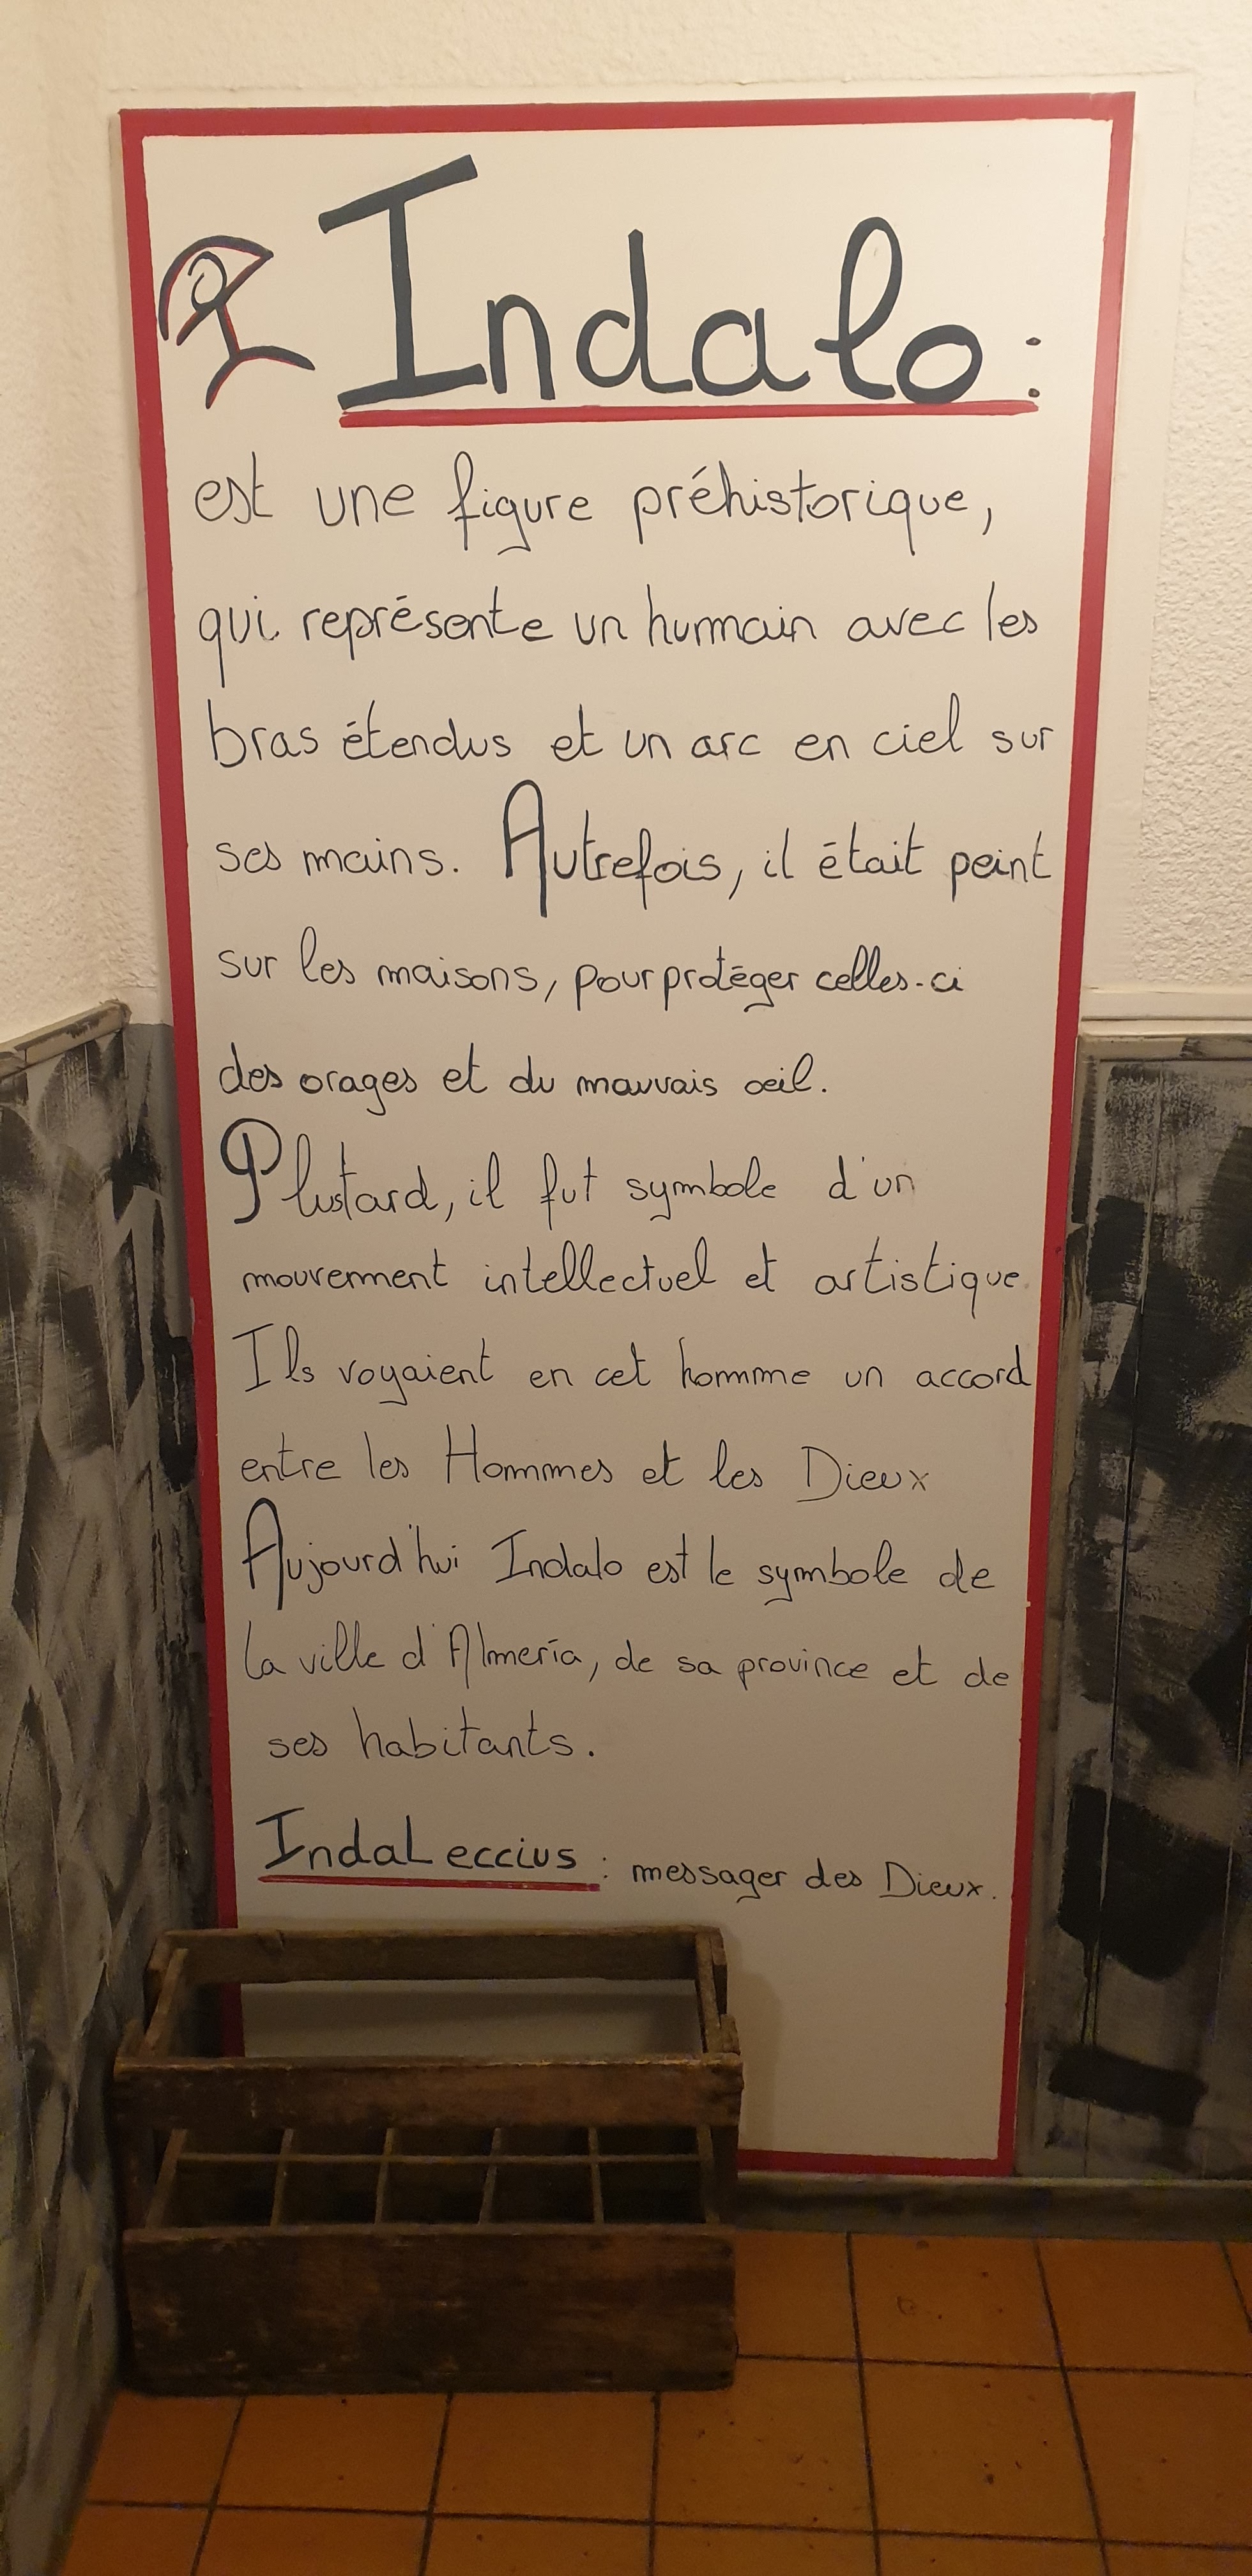 Indalo :
est une figure préhistorique,
qui représente un humain avec les
bras étendus et un arc en ciel sur
ses mains. Autrefois, il était peint
sur les maisons, pour protéger celles-ci
des orages et du mauvais oeil.
Plustard, il fut symbole d'un
mouvement intellectuel et artistique.
Ils voyaient en cet homme un accord
entre les Hommes et les Dieux
Aujourd'hui Indalo est le symbole de
la ville d'Almería, de sa province et de
ses habitants.
IndaLeccius : messager des Dieux.